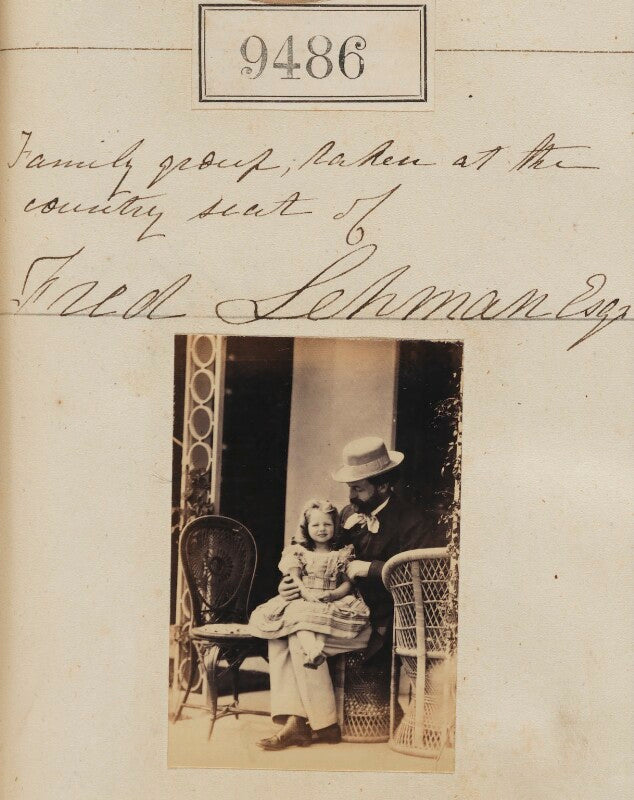 9486
Family group, taken at the
country seat of
Fred Lehman Esqr